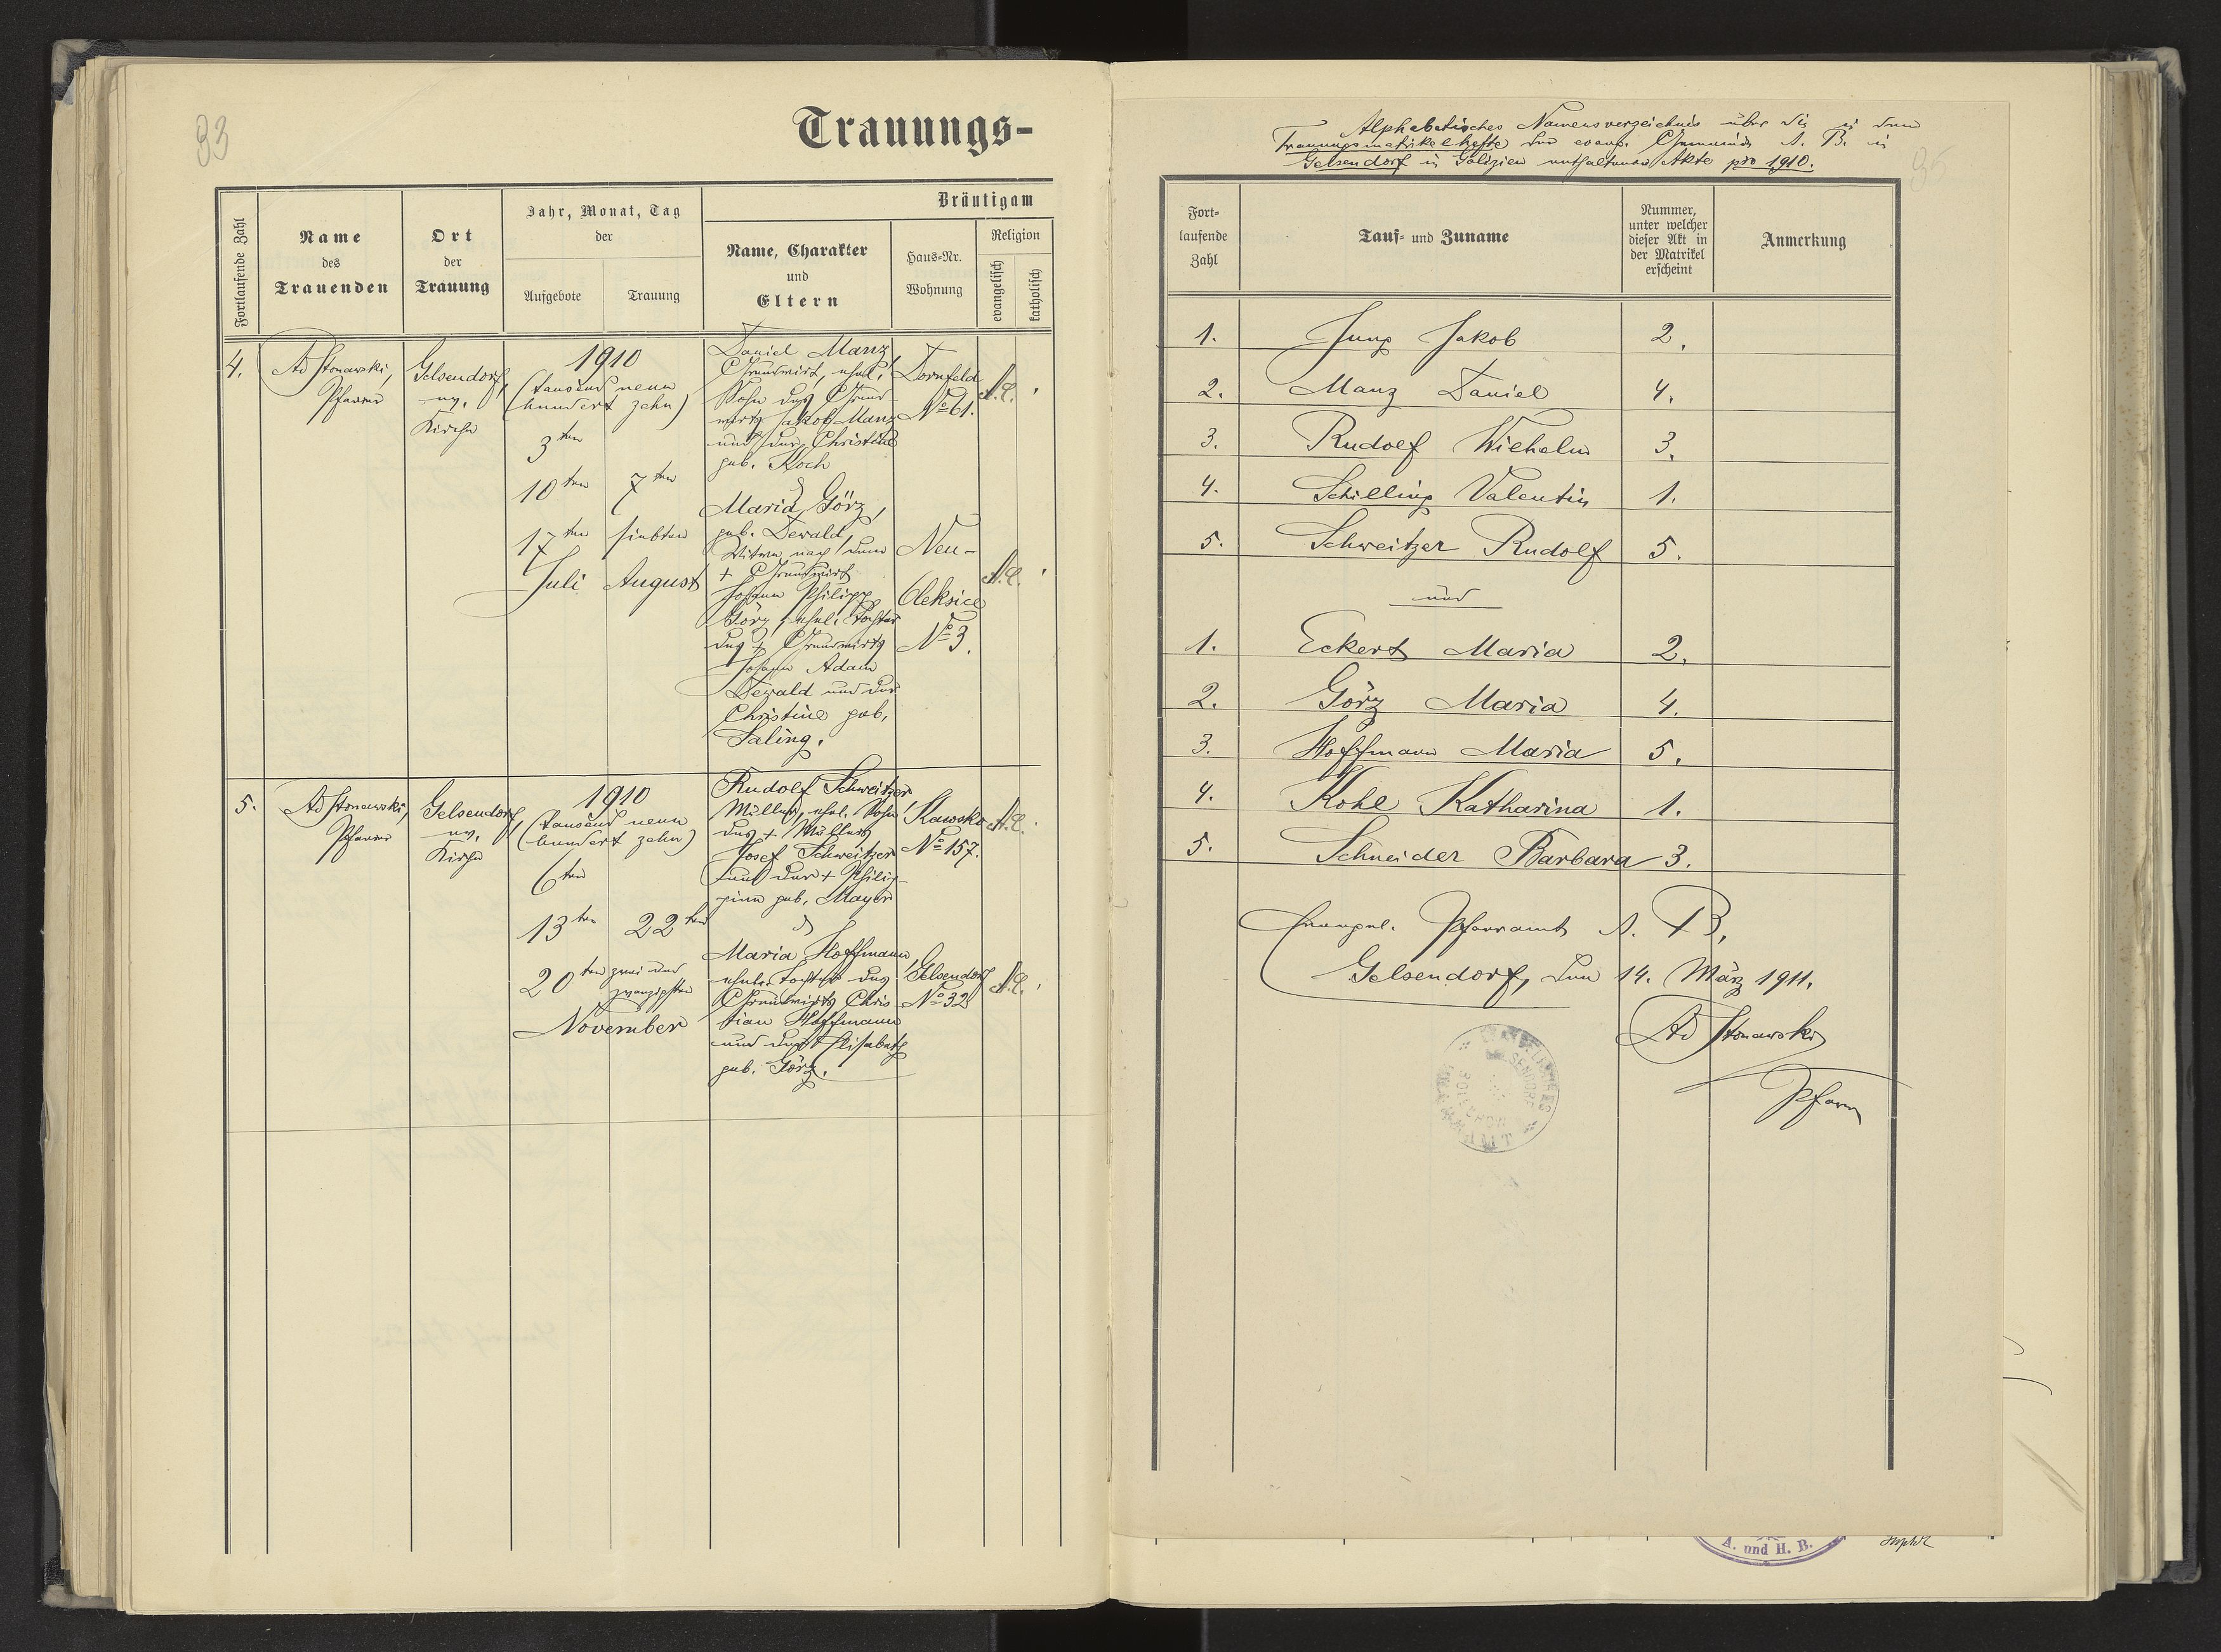 93
Trauungs-
Fortlaufende Zahl
Name
des
Trauenden
Ort
der
Trauung
Jahr, Monat, Tag
der
Aufgebote
Trauung
Bräutigam
Name, Charakter
und
Eltern
Haus-Nr.
Wohnung
Religion
evangelisch
katholisch
4.
Ad Stonawski,
Pfarrer
Gelsendorf,
ev.
Kirche
1910
(tausend neun
hundert zehn)
3ten
10ten 7ten
17ten siebten
Juli August
Daniel Manz,
Grundwirt, ehel.
Sohn des Grund-
wirts Jakob Manz
und der Christine
geb. Koch
Dornfeld
No 61.
A.C.
Maria Görz,
geb. Dewald,
Witwe nach dem
+ Grundwirt
Johann Philipp
Görz, ehel. Tochter
des + Grundwirts
Johann Adam
Dewald und der
Christine geb.
Saling.
Neu-
Oleksice
No 3.
A.C.
5.
Ad Stonawski,
Pfarrer
Gelsendorf,
ev.
Kirche
1910
(tausend neun
hundert zehn)
6ten
13ten 22ten
20ten zwei und
zwanzigsten
November
Rudolf Schweitzer,
Müller, ehel. Sohn
des + Müllers
Josef Schweitzer
und der + Philip-
pine geb. Mayer
Kawsko
No 157.
A.C.
Maria Hoffmann,
Tochter des
Grundwirts Chris
tian Hoffmann
und der Elisabeth
geb. Görz.
Gelsendorf
No 32
A.C.
Alphabetisches Namensverzeichnis über die in dem
Trauungsmatrikelhefte der evang. Gemeinde A. B. in
Gelsendorf in Galizien enthaltenen Akte pro 1910.
95
Fort-
laufende
Zahl
Tauf- und Zuname
Nummer,
unter welcher
dieser Akt in
der Matrikel
erscheint
Anmerkung
1. Jung Jakob 2.
2. Manz Daniel 4.
3. Rudolf Wilhelm 3.
4. Schilling Valentin 1.
5. Schweitzer Rudolf 5.
und
1. Eckert Maria 2.
2. Görz Maria 4.
3. Hoffmann Maria 5.
4. Kohl Katharina 1.
5. Schneider Barbara 3.
Evangel. Pfarramt A. B.
Gelsendorf, den 14. März 1911.
Ad Stonawski
Pfarrer
A. und H. B.